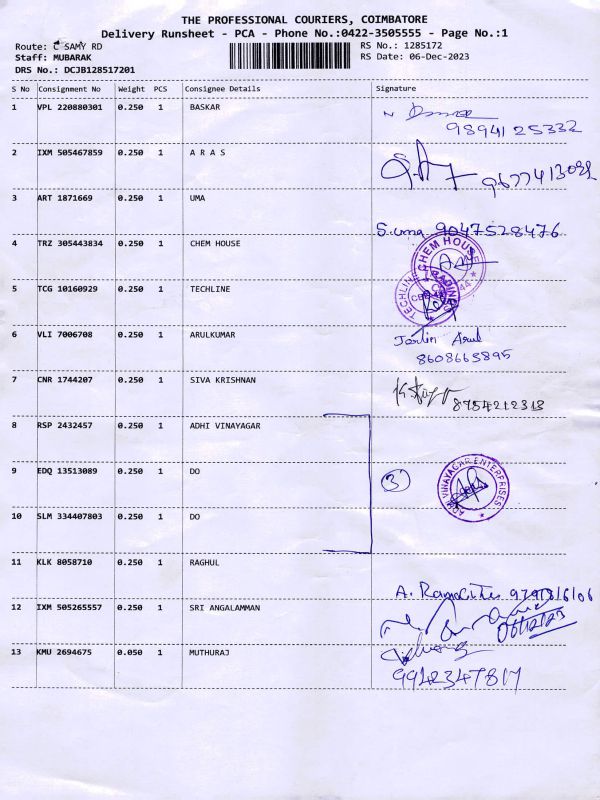 THE PROFESSIONAL COURIERS, COIMBATORE
Delivery Runsheet - PCA - Phone No.:0422-3505555 - Page No.:1
Route: C SAMY RD
RS No.: 1285172
Staff: MUBARAK
RS Date: 06-Dec-2023
DRS No.: DCJB128517201
S No Consignment No Weight PCS Consignee Details Signature
1 VPL 220880301 0.250 1 BASKAR
9894125332
2 IXM 505467859 0.250 1 A R A S
9677413092
3 ART 1871669 0.250 1 UMA
S.uma 9047528476
4 TRZ 305443834 0.250 1 CHEM HOUSE
CHEM HOUSE
5 TCG 10160929 0.250 1 TECHLINE
TECHLINE
6 VLI 7006708 0.250 1 ARULKUMAR
Arul
8608665895
7 CNR 1744207 0.250 1 SIVA KRISHNAN
8954212313
8 RSP 2432457 0.250 1 ADHI VINAYAGAR
9 EDQ 13513089 0.250 1 DO
3
VINAYAGAR ENTERPRISES
10 SLM 334407803 0.250 1 DO
11 KLK 8058710 0.250 1 RAGHUL
A.
12 IXM 505265557 0.250 1 SRI ANGALAMMAN
06/12/23
13 KMU 2694675 0.050 1 MUTHURAJ
9942347817